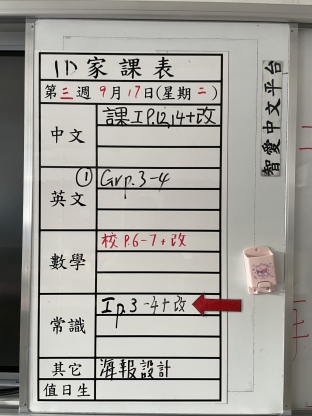 1D 家課表
第三週 9月17日(星期二)
中文 課I P.12,14+改
英文 ① Gr p.3-4
數學 校 P.6-7+改
常識 I p.3-4+改
其它 海報設計
值日生
智愛中文平台